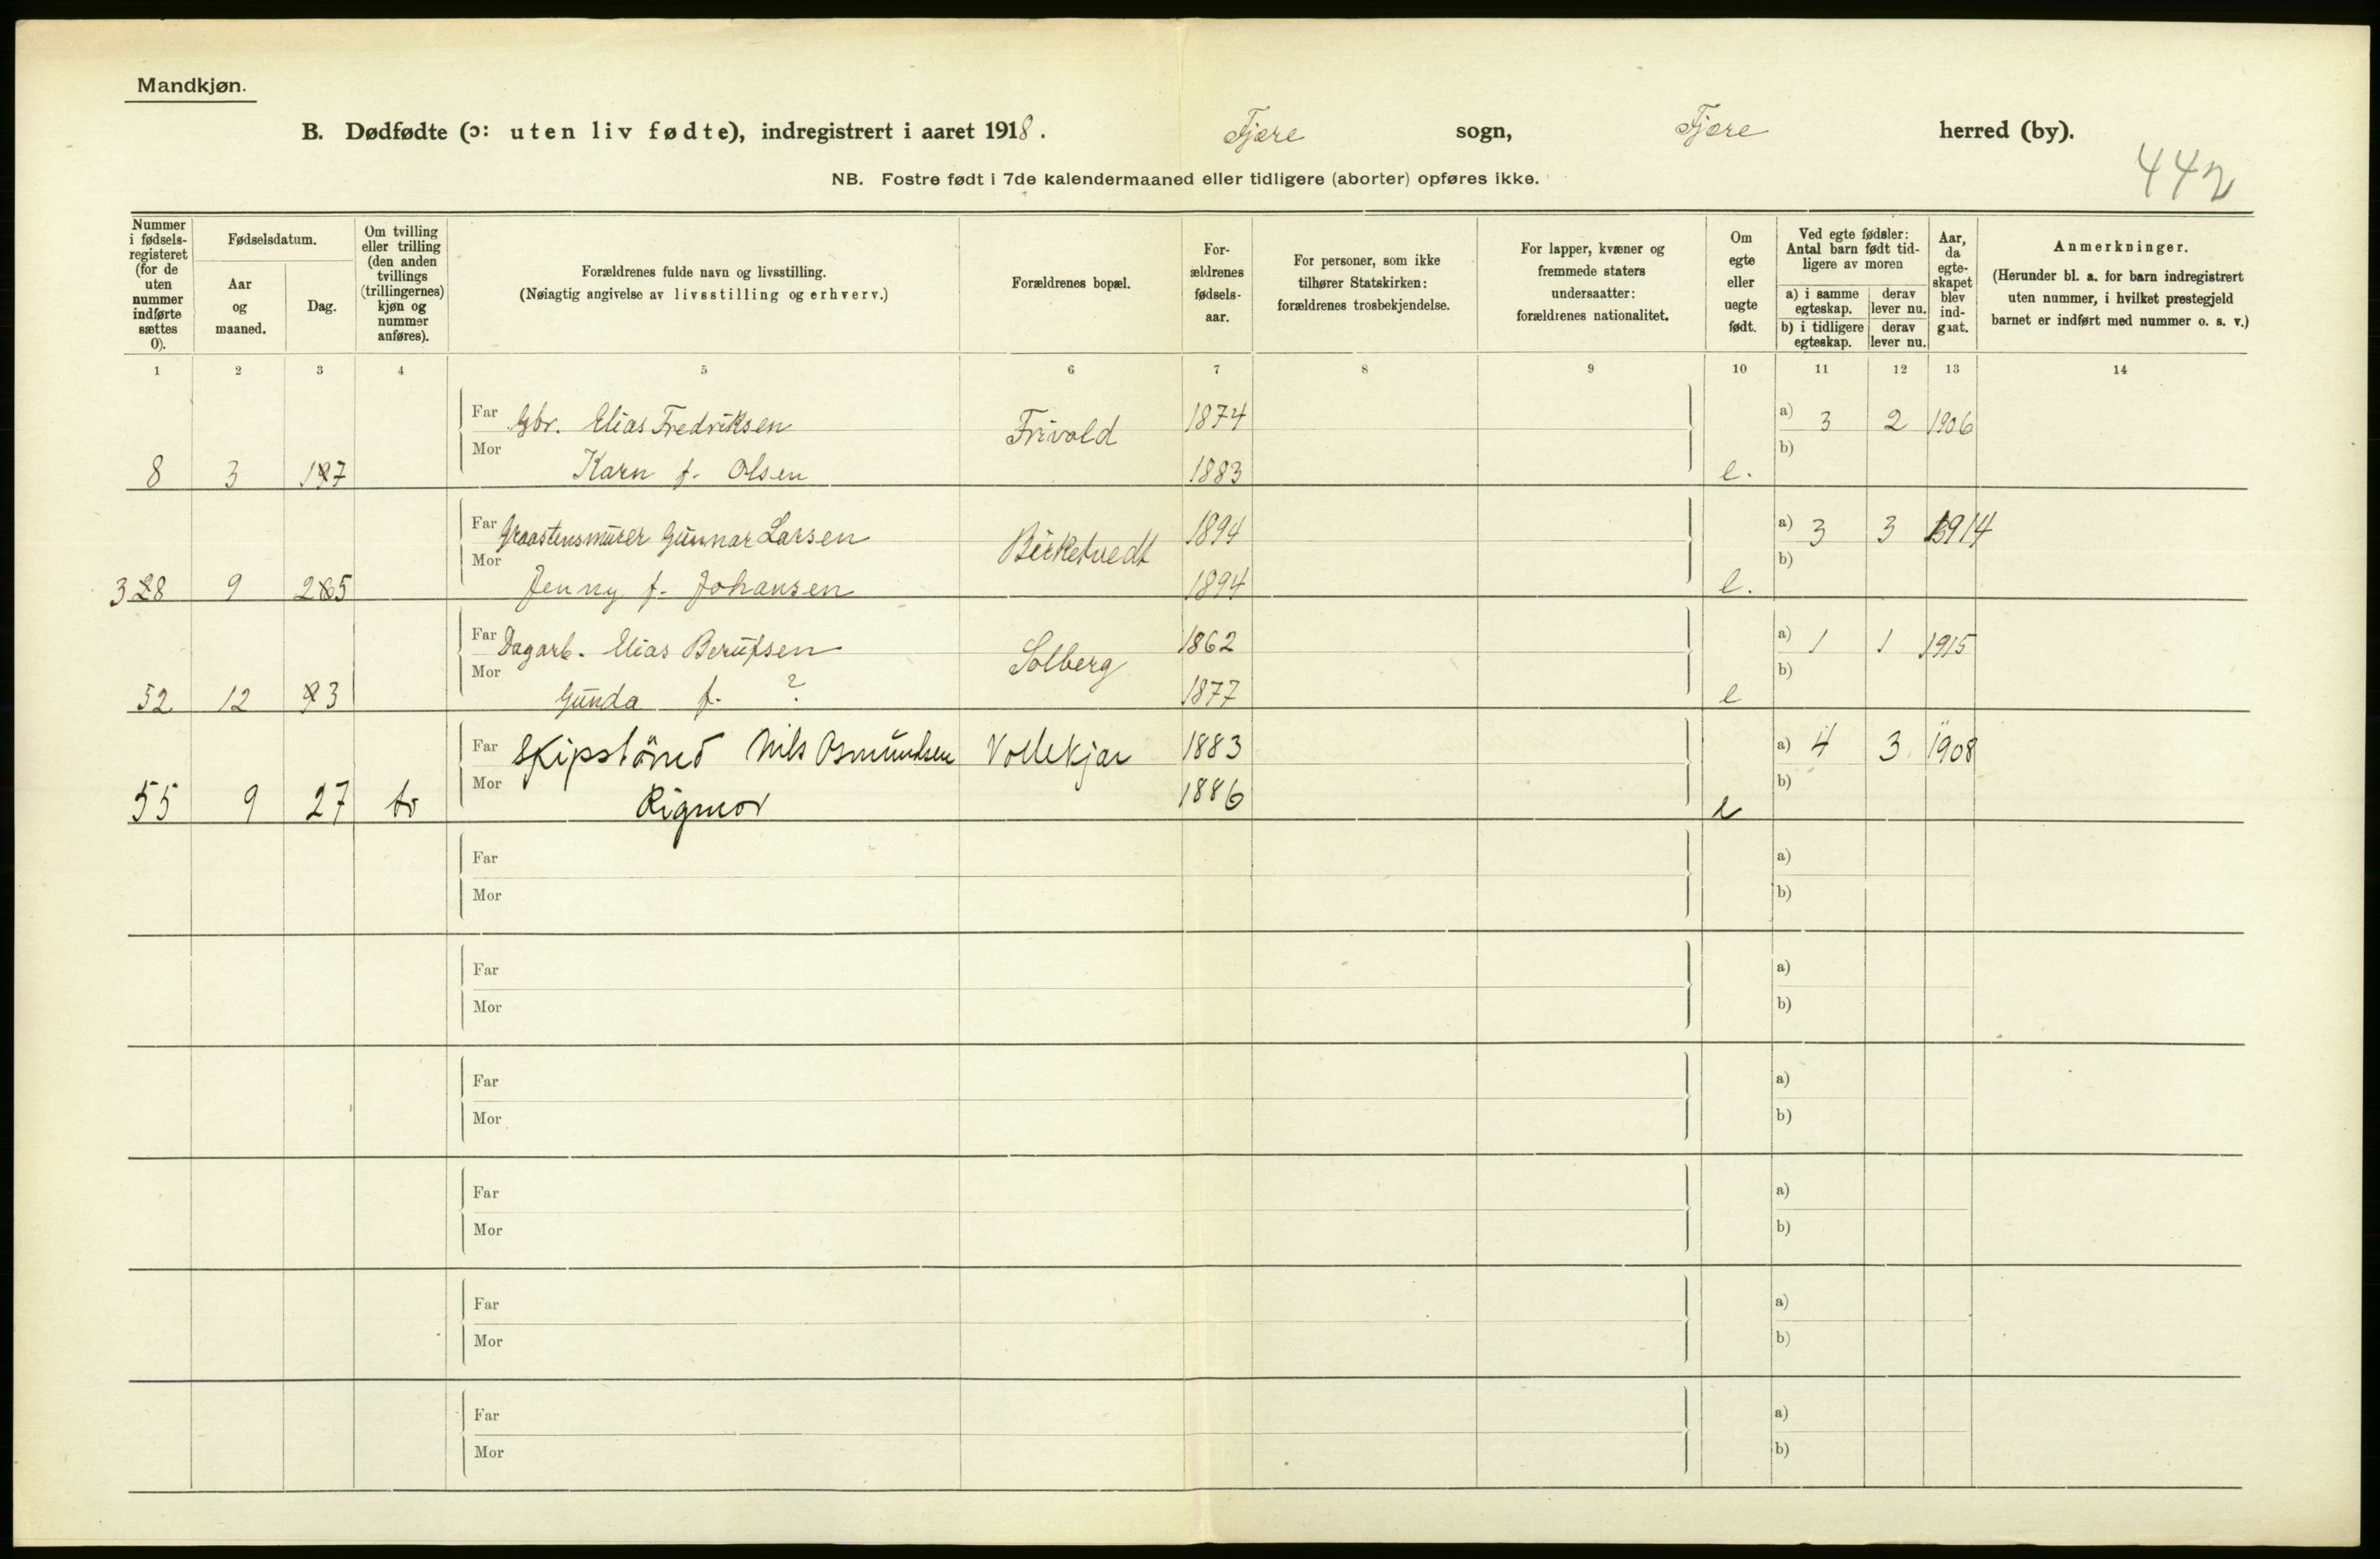 Mandkjøn.
B. Dødfødte (ɔ: uten liv fødte), indregistrert i aaret 1918. Fjære sogn, Fjære herred (by).
442
NB. Fostre født i 7de kalendermaaned eller tidligere (aborter) opføres ikke.
Nummer i fødsels-registeret (for de uten nummer indførte sættes 0).
Fødselsdatum.
Aar og maaned.
Dag.
Om tvilling eller trilling (den anden tvillings (trillingernes) kjøn og nummer anføres).
Forældrenes fulde navn og livsstilling.
(Nøiagtig angivelse av livsstilling og erhverv.)
Forældrenes bopæl.
For-ældrenes fødsels-aar.
For personer, som ikke tilhører Statskirken: forældrenes trosbekjendelse.
For lapper, kvæner og fremmede staters undersaatter: forældrenes nationalitet.
Om egte eller uegte født.
Ved egte fødsler: Antal barn født tid-ligere av moren
a) i samme egteskap. derav lever nu.
b) i tidligere egteskap. derav lever nu.
Aar, da egte-skapet blev ind-gaat.
Anmerkninger.
(Herunder bl. a. for barn indregistrert uten nummer, i hvilket prestegjeld barnet er indført med nummer o. s. v.)
1 2 3 4 5 6 7 8 9 10 11 12 13 14
Far Gbr. Elias Fredriksen Frivold 1874 a) 3 2 1906
8 3 17 Mor Karn f. Olsen 1883 e. b)
Far Graastensmurer Gunnar Larsen Birketvedt 1894 a) 3 3 1914
38 9 25 Mor Jenny f. Johansen 1894 e. b)
Far Dagarb. Elias Berufsen Solberg 1862 a) 1 1 1915
52 12 3 Mor Gunda f. ? 1877 e b)
Far Skipstømd Nils Osmundsen Vollekjær 1883 a) 4 3 1908
55 9 27 to Mor Rigmor 1886 e b)
Far a)
Mor b)
Far a)
Mor b)
Far a)
Mor b)
Far a)
Mor b)
Far a)
Mor b)
Far a)
Mor b)